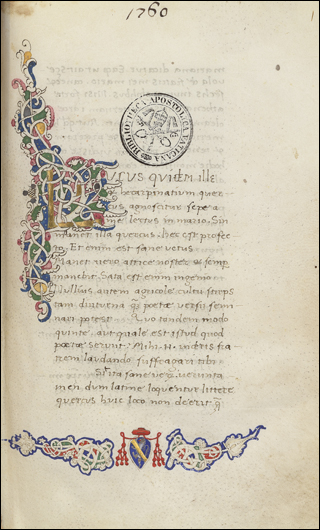 1760
BIBLIOTHECA APOSTOLICA VATICANA
LUCUS QUIDEM ILLE
et hec arpinatium quer
cus agnoscitur sepe a
me lectus in mario. Sin
manet illa quercus. hec est profec
to. Et enim est sane vetus
manet vero attice noster et semp
manebit. Sata est enim ingenio
Nullius autem agricole cultu stirps
tam diuturna q̃ poetae versu semi
nari potest. Quo tandem modo
quinte. aut quale est istud quod
poetae serunt. Mihi. N. videris fra
trem laudando suffragari tibi
Sit ita sane verum
men dum latine loquentur littere
quercus huic loco non deerit. q̃